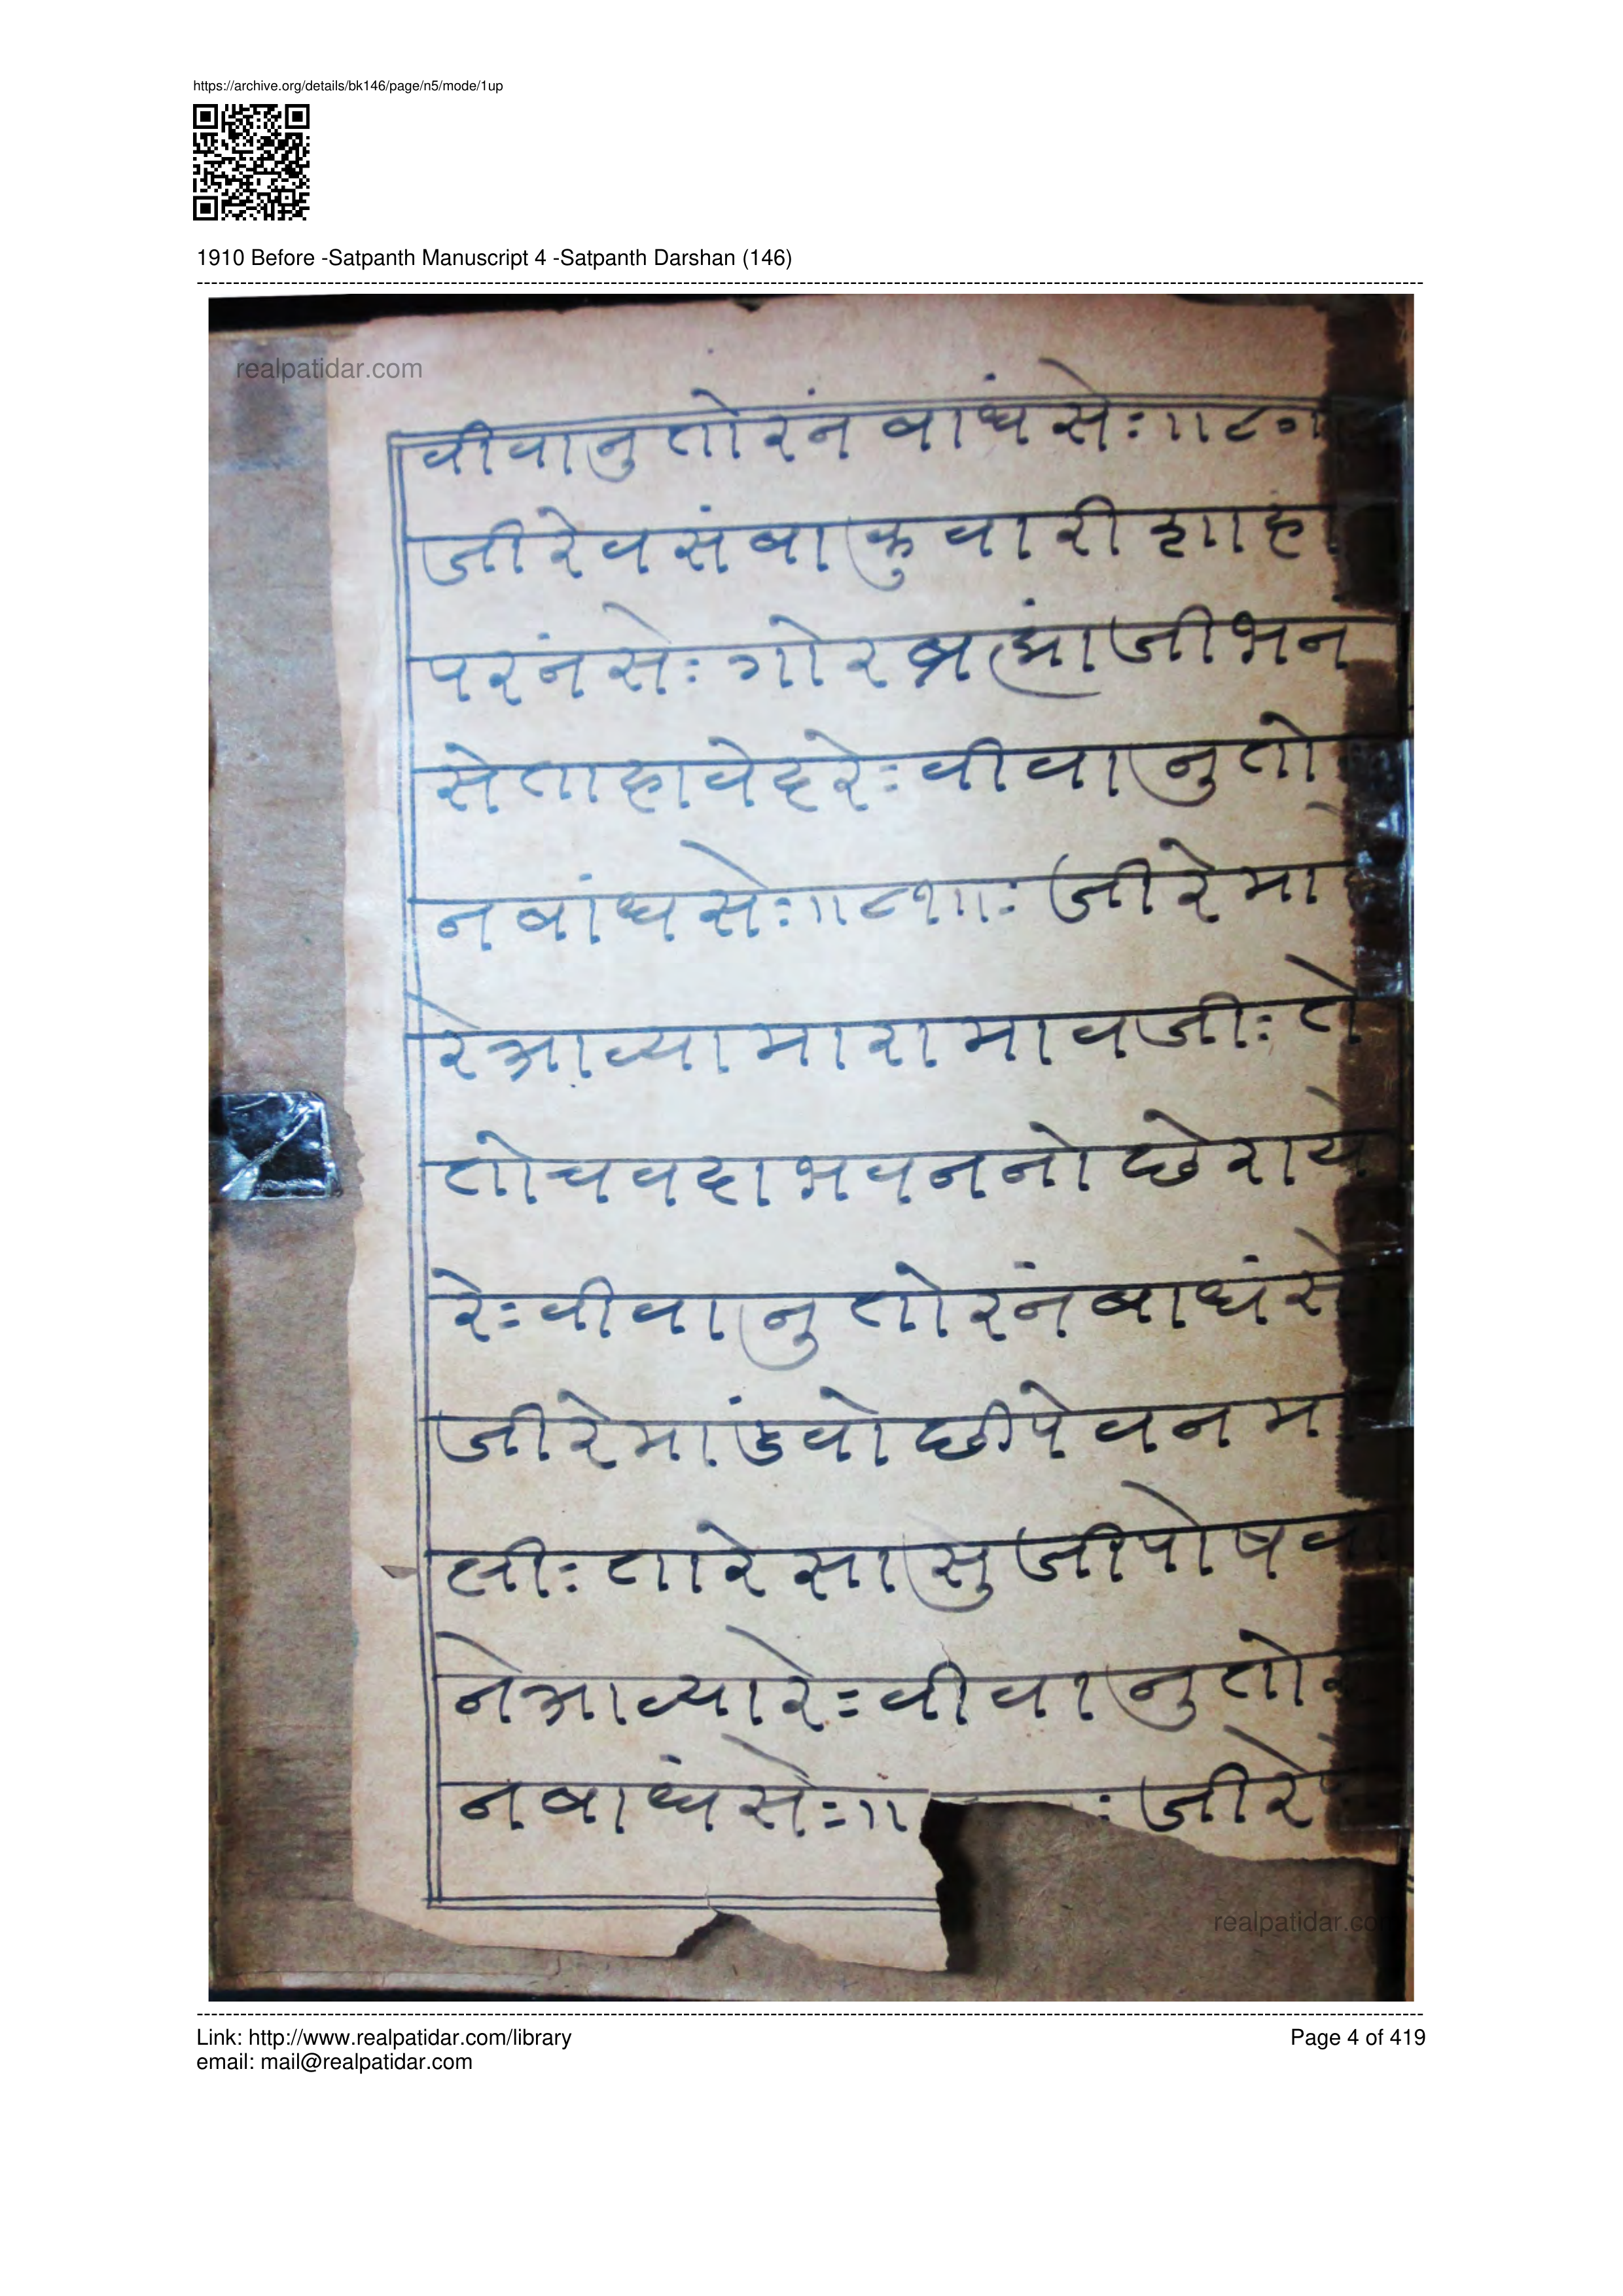 https://archive.org/details/bk146/page/n5/mode/1up
1910 Before -Satpanth Manuscript 4 -Satpanth Darshan (146)
realpatidar.com
वीवानु तोरंन बाधसेः॥८०॥
जीरे वसंबा कुवारी शाहा
परनंसेः गोर ब्रह्मांजी भन
से ताहा वेदरेः वीवानु तो
न बांधसेः॥८१॥ः जीरे मा
रे आव्या मारा मावजीः ते
तो चवदा भवननो छे राय
रेः वीवानु तोरंन बाधंसे
जीरे मांडवो छीपे वन म
लीः तारे सासुजी पोषवा
ने आव्या रेः वीवानु तोर
न बाधंसेः॥ ः जीरे
realpatidar.co
Link: http://www.realpatidar.com/library
Page 4 of 419
email: mail@realpatidar.com